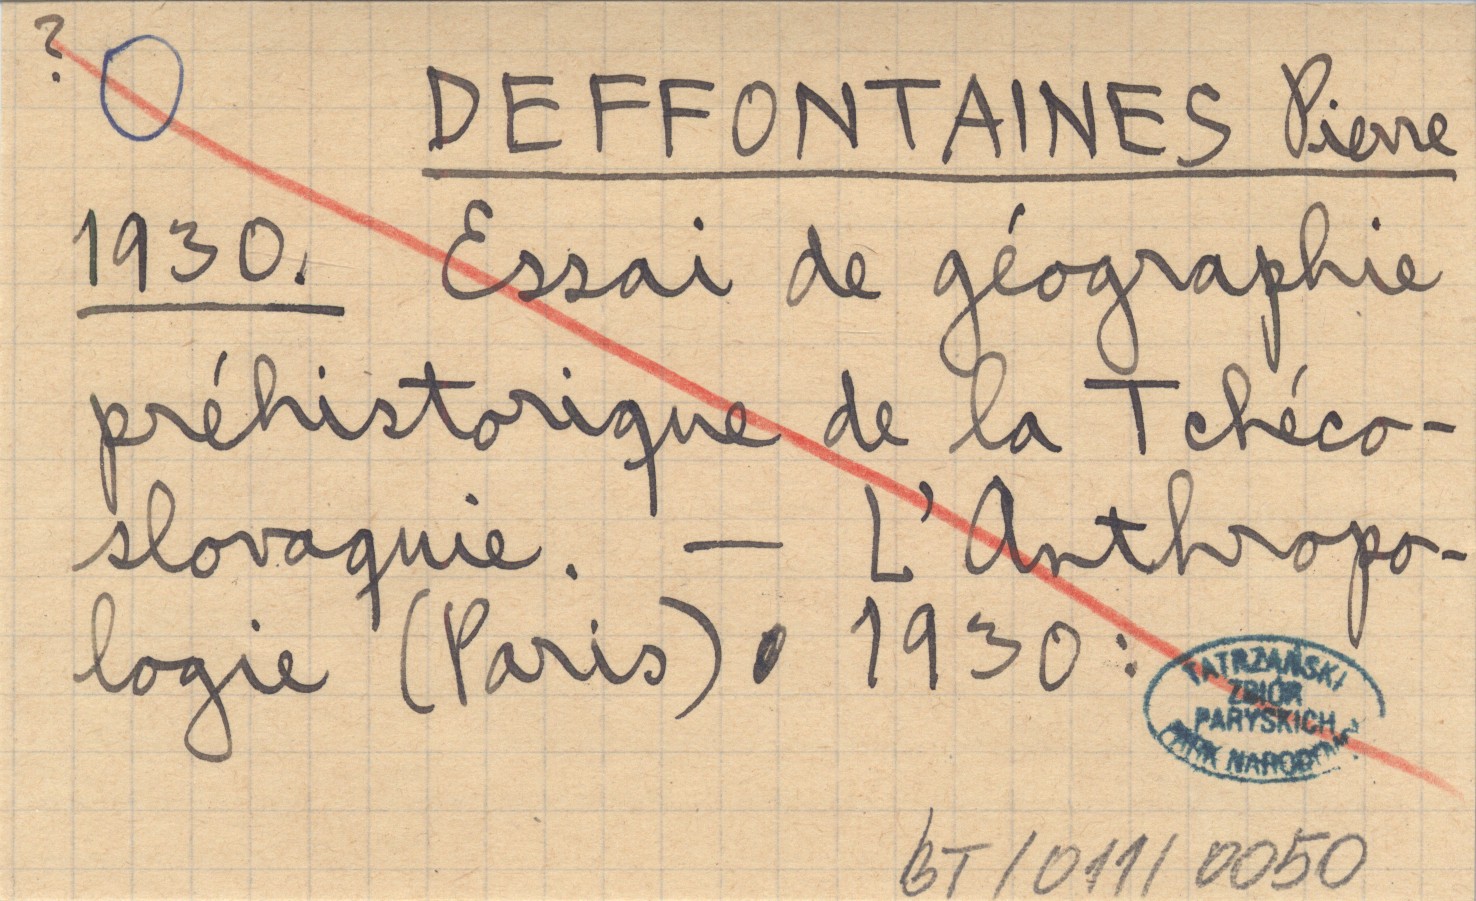 ?
DEFFONTAINES Pierre
1930. Essai de géographie
préhistorique de la Tchéco-
slovaquie. — L'Anthropo-
logie (Paris) • 1930:
TATRZAŃSKI
ZBIÓR
PARYSKICH
PARK NARODOWY
BT/011/0050